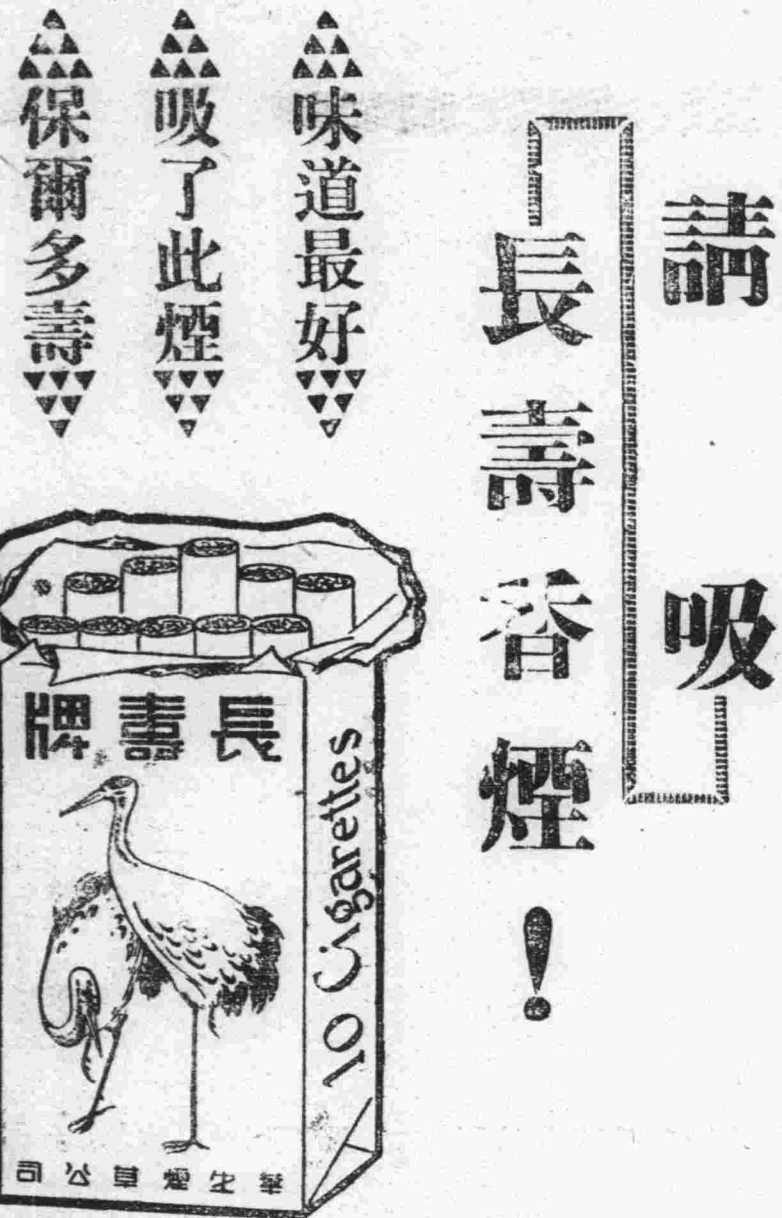 請吸
長壽香煙！
味道最好
吸了此煙
保爾多壽
長壽牌
10 Cigarettes
華生煙草公司